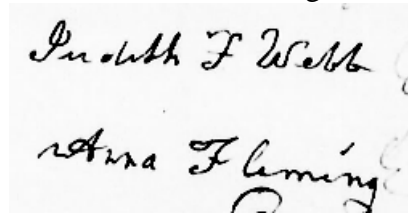 Judith F Webb
Anna Fleming